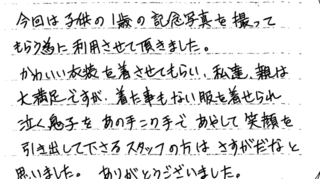 今回は子供の1歳の記念写真を撮って
もらう為に利用させて頂きました。
かわいい衣装を着させてもらい、私達、親は
大満足ですが、着た事もない服を着せられ
泣く息子をあの手この手であやして笑顔を
引き出して下さるスタッフの方はさすがだなと
思いました。ありがとうございました。